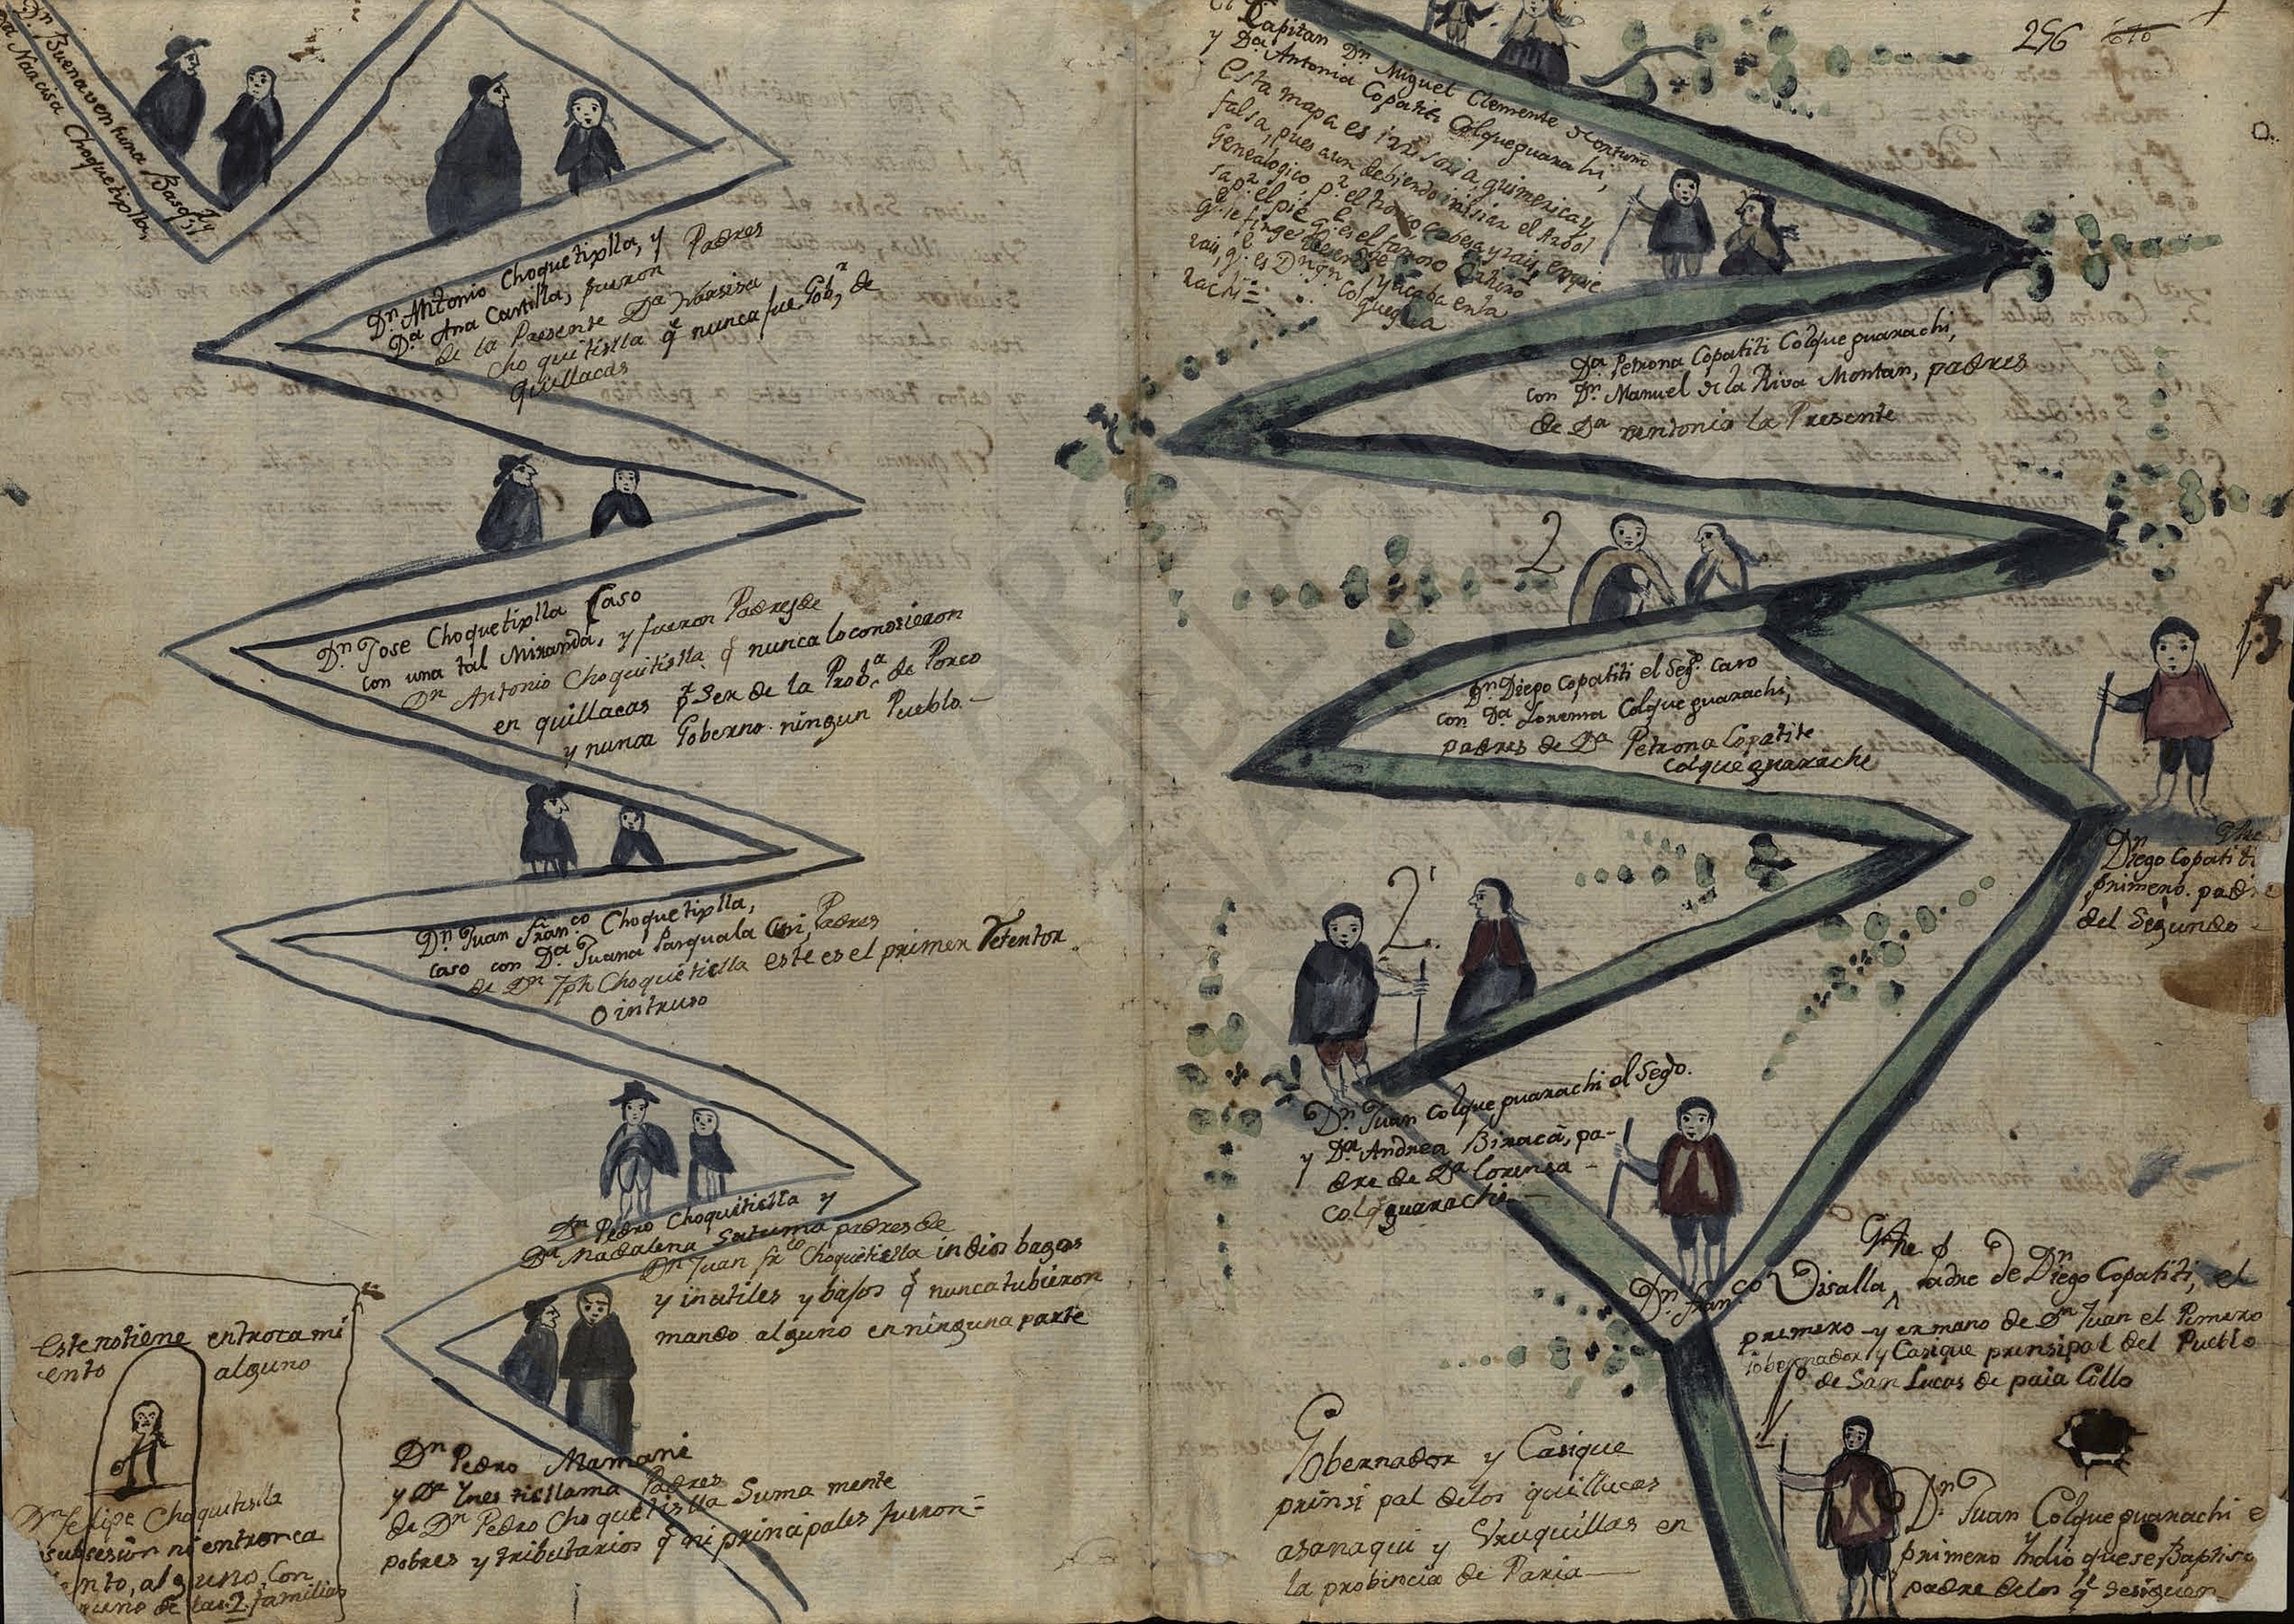 Dn. Buenaventura Basqz
Da Narcisa Choquetiplla,
Dn. Antonio Choquetiplla, y Padres
Da. Ana Cantilla, fueron
de la Presente Da Narsisa
Choquetislla q.e nunca fue Gobr. de
quillacas
Dn. Jose Choquetiplla Caso
con una tal Miranda, y fueron Padres de
Dn Antonio Choquitislla q.e nunca lo consieron
en quillacas pr. Ser de la Prob.a de Porco
y nunca Goberno ningun Pueblo
Dn. Juan Fran.co Choquetiplla,
caso con Da. Juana Pasquala Padres
de Dn Jph Choquetislla este es el primer Tetentor
O intruso
Dn. Pedro Choquitislla y
Da Madalena Satuma padres de
Dn Juan Fr.co Choquetislla indios bagos
y inutiles y bajos q.e nunca tubieron
mando alguno en ninguna parte
Este no tiene entroca mi
ento alguno
Dn Felipe Choquitislla
subsesion ni entronca
alguno, Con
de las 2 familias
Dn Pedro Mamani
y Da Ynes tisllama Padres
de Dn Pedro Choquetislla Suma mente
pobres y tributarios q.e ni principales fueron=
256
El Capitan Dn. Miguel Clemente
y Da Antonia Copatiti Colqueguarachi,
Esta mapa es irrisoria, quimerica y
falsa, pues aun debiendo inisiar el Arbol
Genealogico, pr. el tronco cabesa y rais, empie
sa pr. el pie q.e es el famoso
q.e se finge y acaba en la
rais, q.e es Dn Jn Colquegua
rachi=
Da. Petrona Copatiti Colqueguarachi,
con Dn. Manuel de la Riva Montan, padres
de Da Antonia la Presente
2
Dn. Diego Copatiti el Segdo. Caso
con Da Lorensa Colqueguarachi,
padres de Da Petrona Copatite
Colqueguarache
Dn Diego Copatiti
primero. padre
del Segundo
2.
Dn. Juan Colqueguarachi el Segdo.
y Da. Andrea Biraca, pa-
dre de Da Lorensa
Colqguarachi
Dn. Fran.co Visalla, Padre de Dn Diego Copatiti, el
primero y ermano de Dn Juan el Pimero
Gobernador y Casique prinsipal del Pueblo
de San Lucas de paia Collo
Gobernador y Casique
prinsipal delos quillucas
asanaqui y Uruquillas en
la probincia de Paria
1
Dn. Juan Colqueguarachi e
primero Yndio que se Baptiso
padre delos q.e se siguen